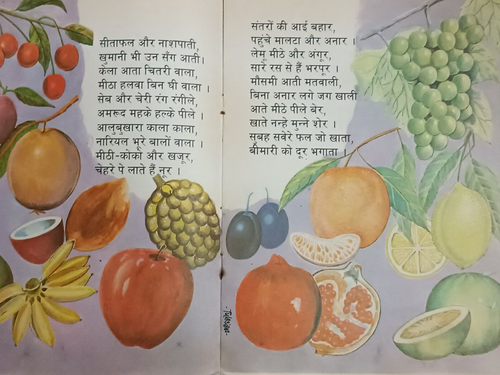 सीताफल और नाशपाती,
खुमानी भी उन सँग आती।
केला आता चितरी वाला,
मीठा हलवा बिन घी वाला।
सेब और चेरी रंग रंगीले,
अमरूद महके हल्के पीले।
आलूबुखारा काला काला,
नारियल भूरे बालों वाला।
मीठी-कोको और खजूर,
चेहरे पे लाते हैं नूर।
संतरों की आई बहार,
पहुंचे मालटा और अनार।
लेम मीठे और अंगूर,
सारे रस से हैं भरपूर।
मौसमी आती मतवाली,
बिना अनार लगे जग खाली
आते मीठे पीले बेर,
खाते नन्हे मुन्ने शेर।
सुबह सवेरे फल जो खाता,
बीमारी को दूर भगाता।